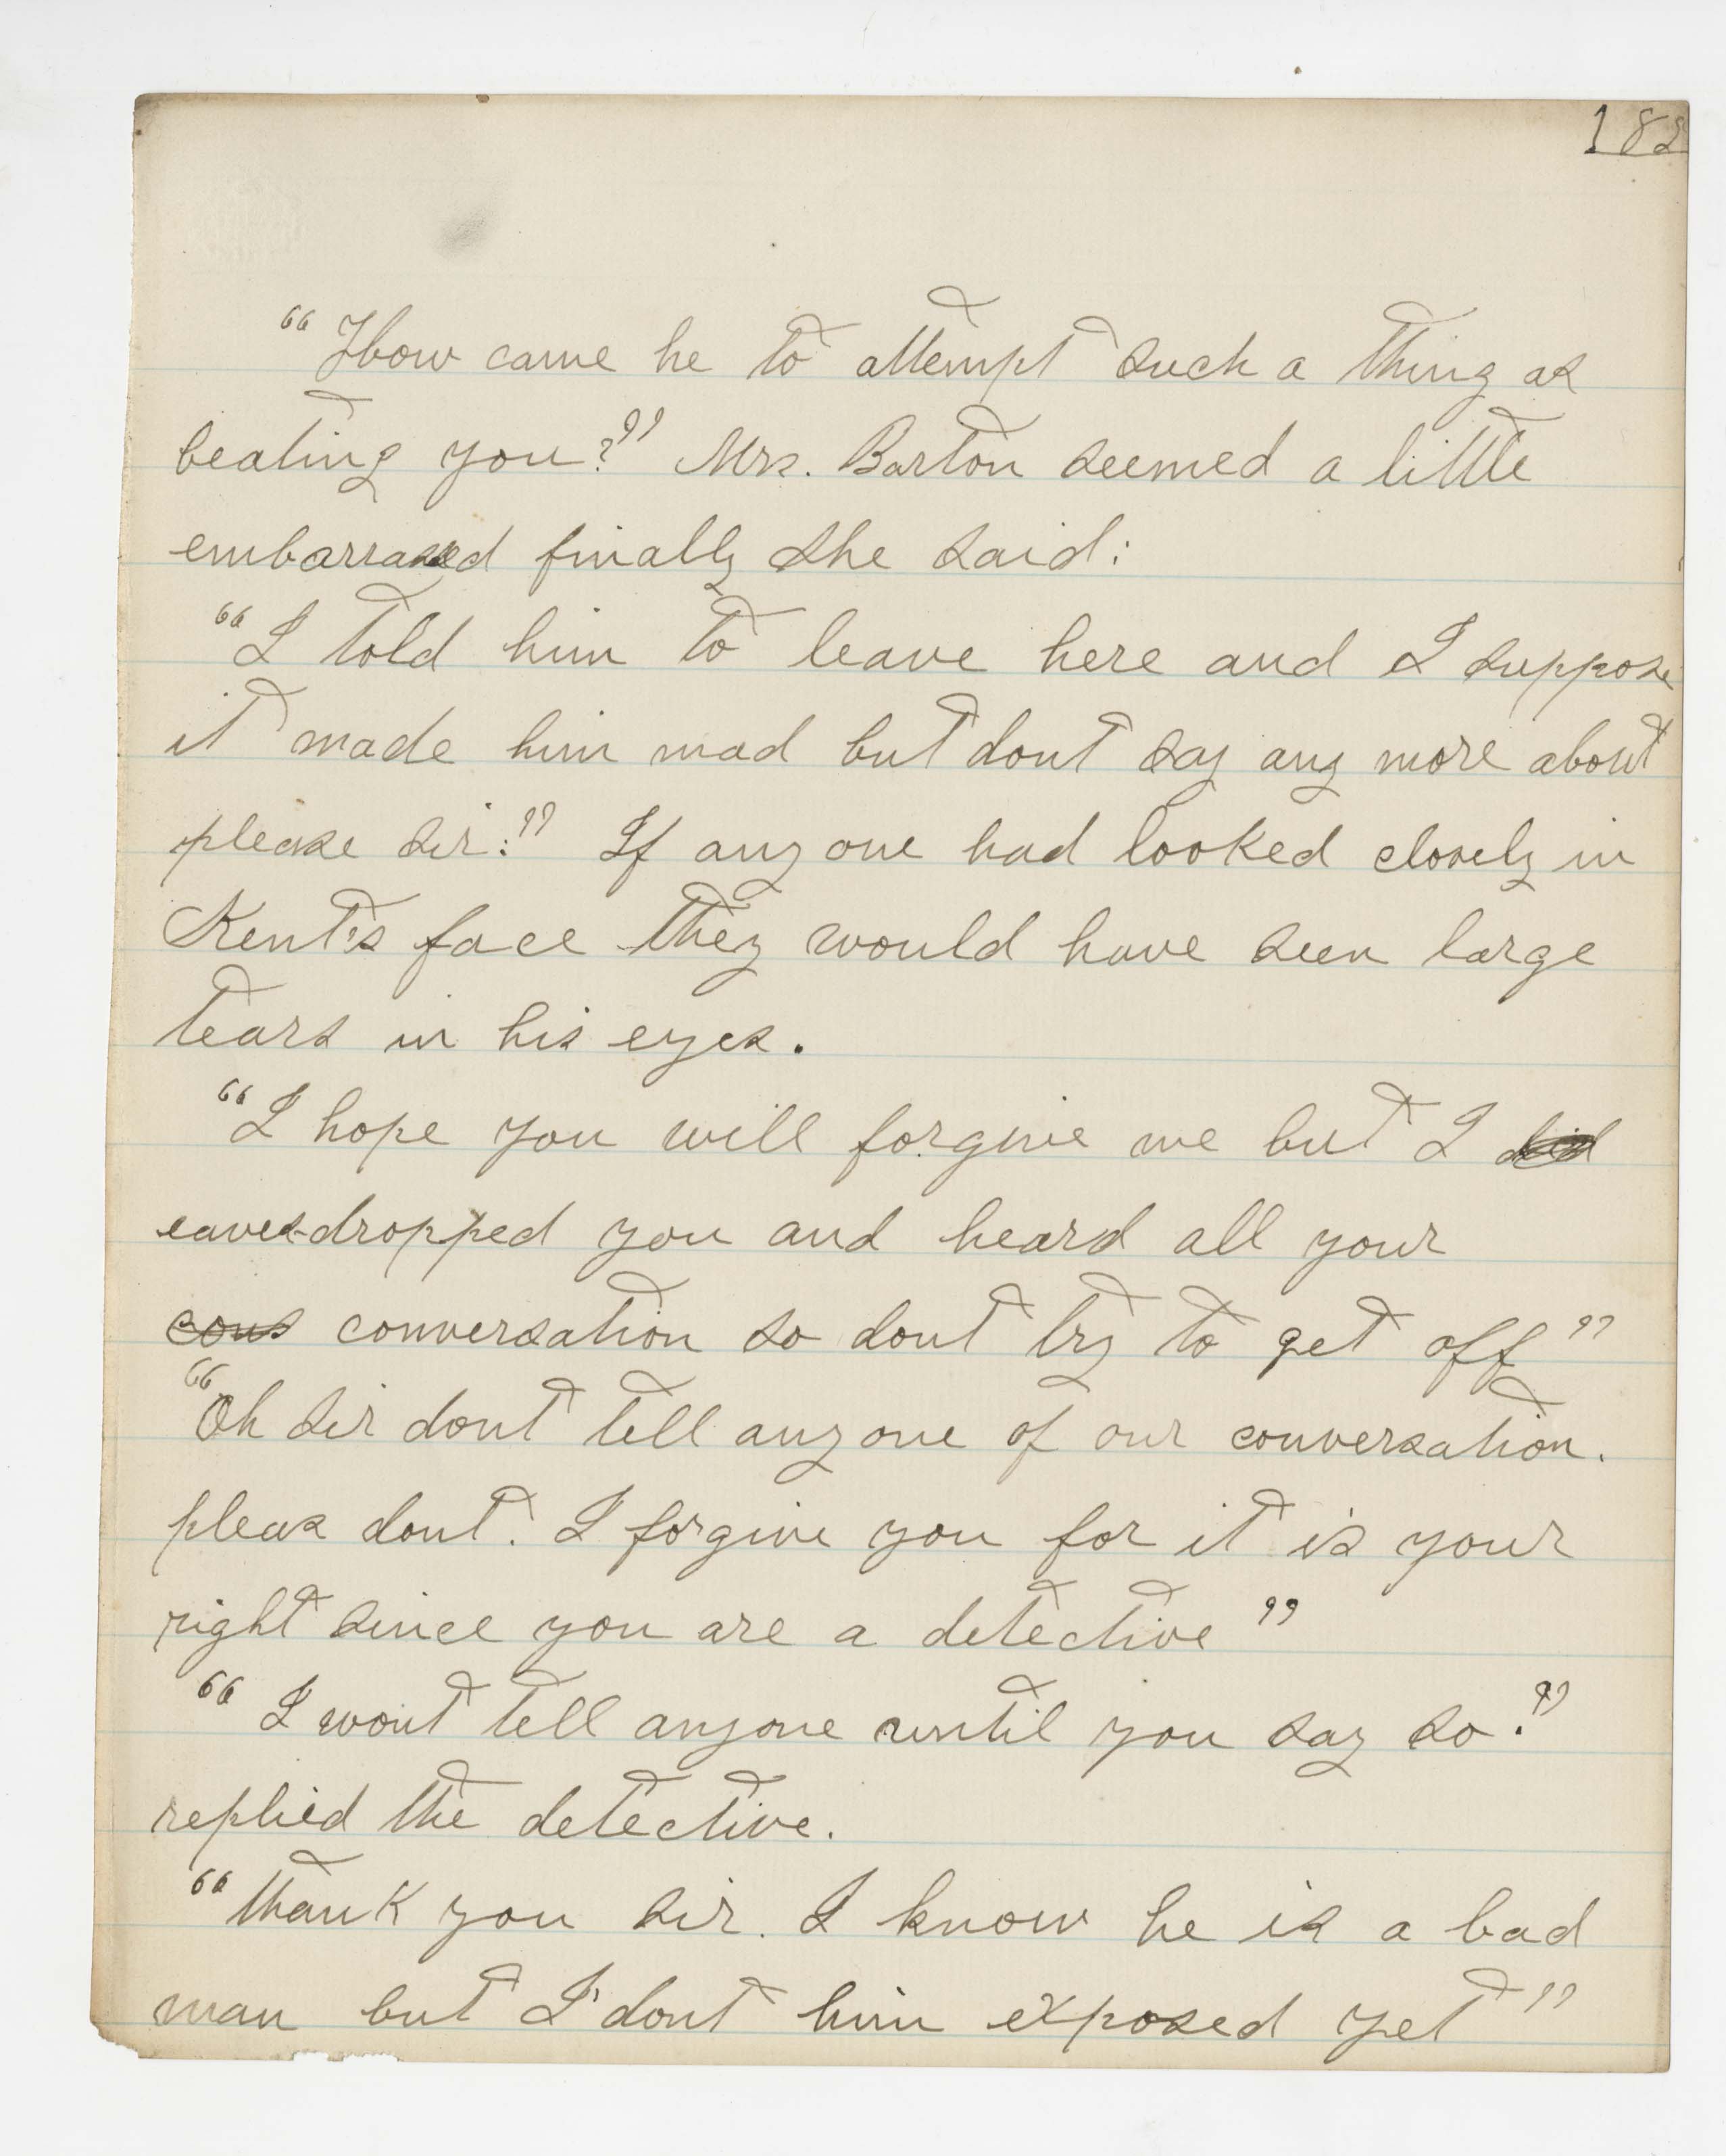 182
“How came he to attempt such a thing as
beating you?” Mrs. Barton seemed a little
embarrased finally she said:
“I told him to leave here and I suppose
it made him mad but dont say any more about
please sir.” If any one had looked closely in
Kent's face they would have seen large
tears in his eyes.
“I hope you will forgive me but I did
eaves-dropped you and heard all your
cons conversation so dont try to get off”
“Oh sir dont tell any one of our conversation.
pleas dont. I forgive you for it is your
right since you are a detective”
“I wont tell anyone until you say so.”
replied the detective.
“thank you sir. I know he is a bad
man but I dont him exposed yet”